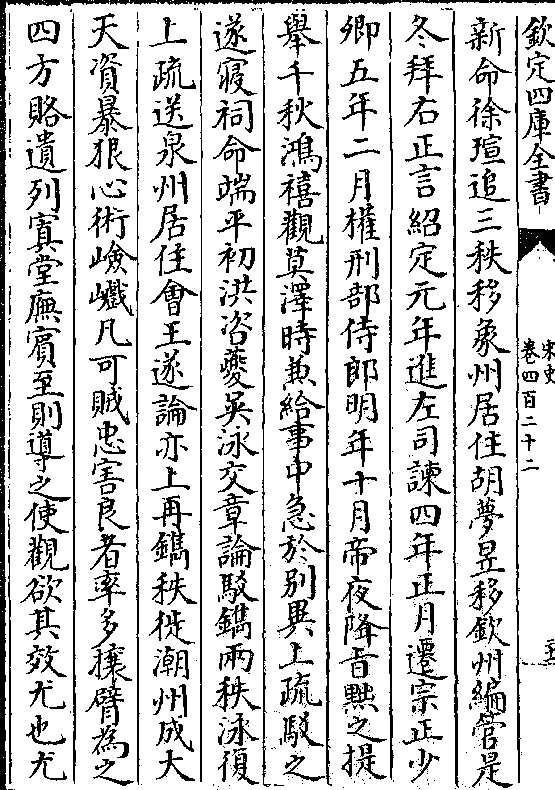 欽定四庫全書
宋史
卷四百二十二
新命徐瑄追三秩移象州居住胡夢昱移欽州編管是
冬拜右正言紹定元年進左司諫四年正月遷宗正少
卿五年二月權刑部侍郎明年十月帝夜降旨黜之提
舉千秋鴻禧觀莫澤時兼給事中急於別異上疏駁之
遂寢祠命端平初洪咨夔吳泳交章論駁鐫兩秩泳復
上疏送泉州居住會王遂論亦上再鐫秩徙潮州成大
天資暴狠心術嶮巇凡可賊忠害良者率多攘臂為之
四方賂遺列寘堂廡賓至則導之使觀欲其效尤也尤